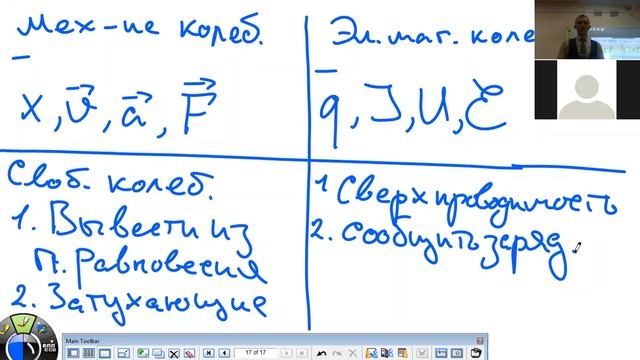 Мех-ие колеб.
Эл. маг. коле
x, v, a, F
q, J, U, Ɛ
Своб. колеб.
1. Вывести из
п. Равновесия
2. Затухающие
1 Сверхпроводимость
2. Сообщить заряд.
Main Toolbar
17 of 17